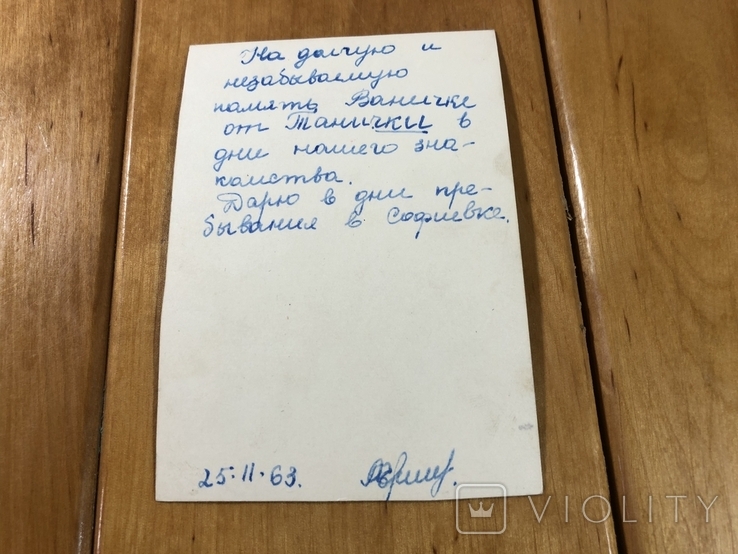 На долгую и
незабываемую
память Ваничке
от Танички в
дни нашего зна-
комства.
Дарю в дни пре-
бывания в Софиевке.
25.II.63.
VIOLITY